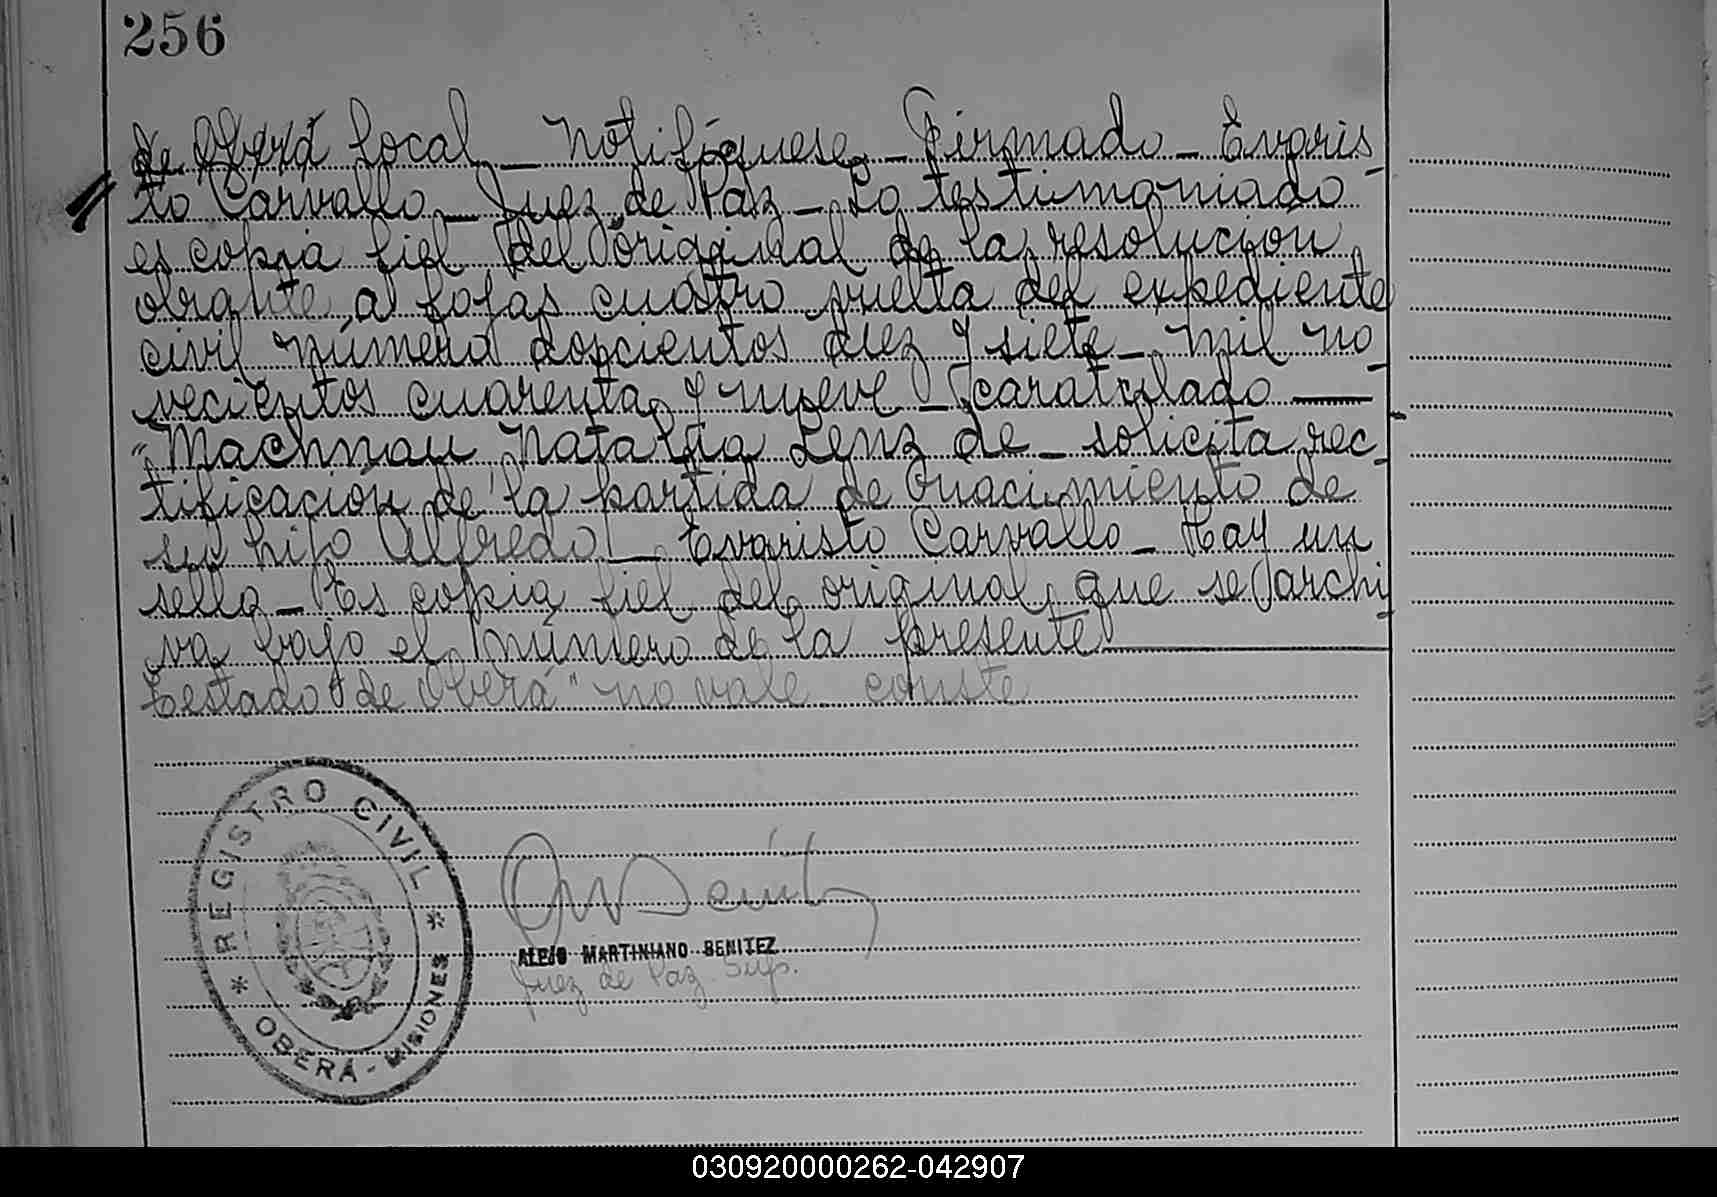 256
de Oberá local - Notifíquese - Firmado - Evaris
to Carvallo - Juez de Paz - Lo testimoniado -
es copia fiel del original de la resolución
obrante a fojas cuatro vuelta del expediente
civil número doscientos diez y siete - mil no
vecientos cuarenta y nueve - caratulado —
"Machnau Natalia Lenz de - solicita rec
tificación de la partida de nacimiento de
su hijo Alfredo - Evaristo Carvallo - Hay un
sello - Es copia fiel del original que se archi
va bajo el número de la presente
Testado "de Oberá" no vale conste
* REGISTRO CIVIL *
OBERÁ - MISIONES
ALEJO MARTINIANO BENITEZ
Juez de Paz Sup.
030920000262-042907